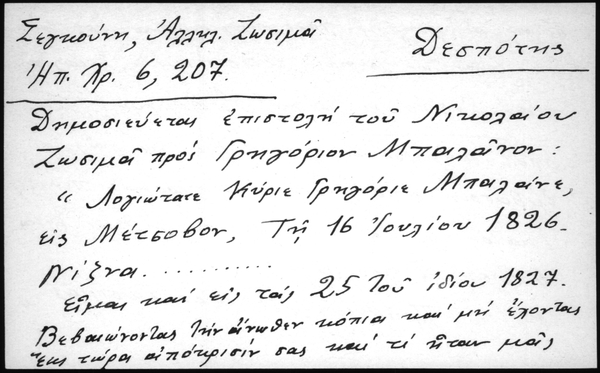 Σεγκούνη, Ἀλληλ. Ζωσιμᾶ
Δεσπότης
Ἠπ. Χρ. 6, 207.
Δημοσιεύεται ἐπιστολή τοῦ Νικολαίου
Ζωσιμᾶ πρός Γρηγόριον Μπαλᾶνον:
"Λογιώτατε Κύριε Γρηγόριε Μπαλᾶνε,
εἰς Μέτσοβον, Τῇ 16 Ἰουλίου 1826.
Νίζνα..........
εἶμαι καί εἰς τάς 25 τοῦ ἰδίου 1827.
Βεβαιώνοντας τήν ἄνωθεν κόπια καί μή ἔχοντας
ἕως τώρα ἀπόκρισίν σας καί τί ἦταν μᾶς